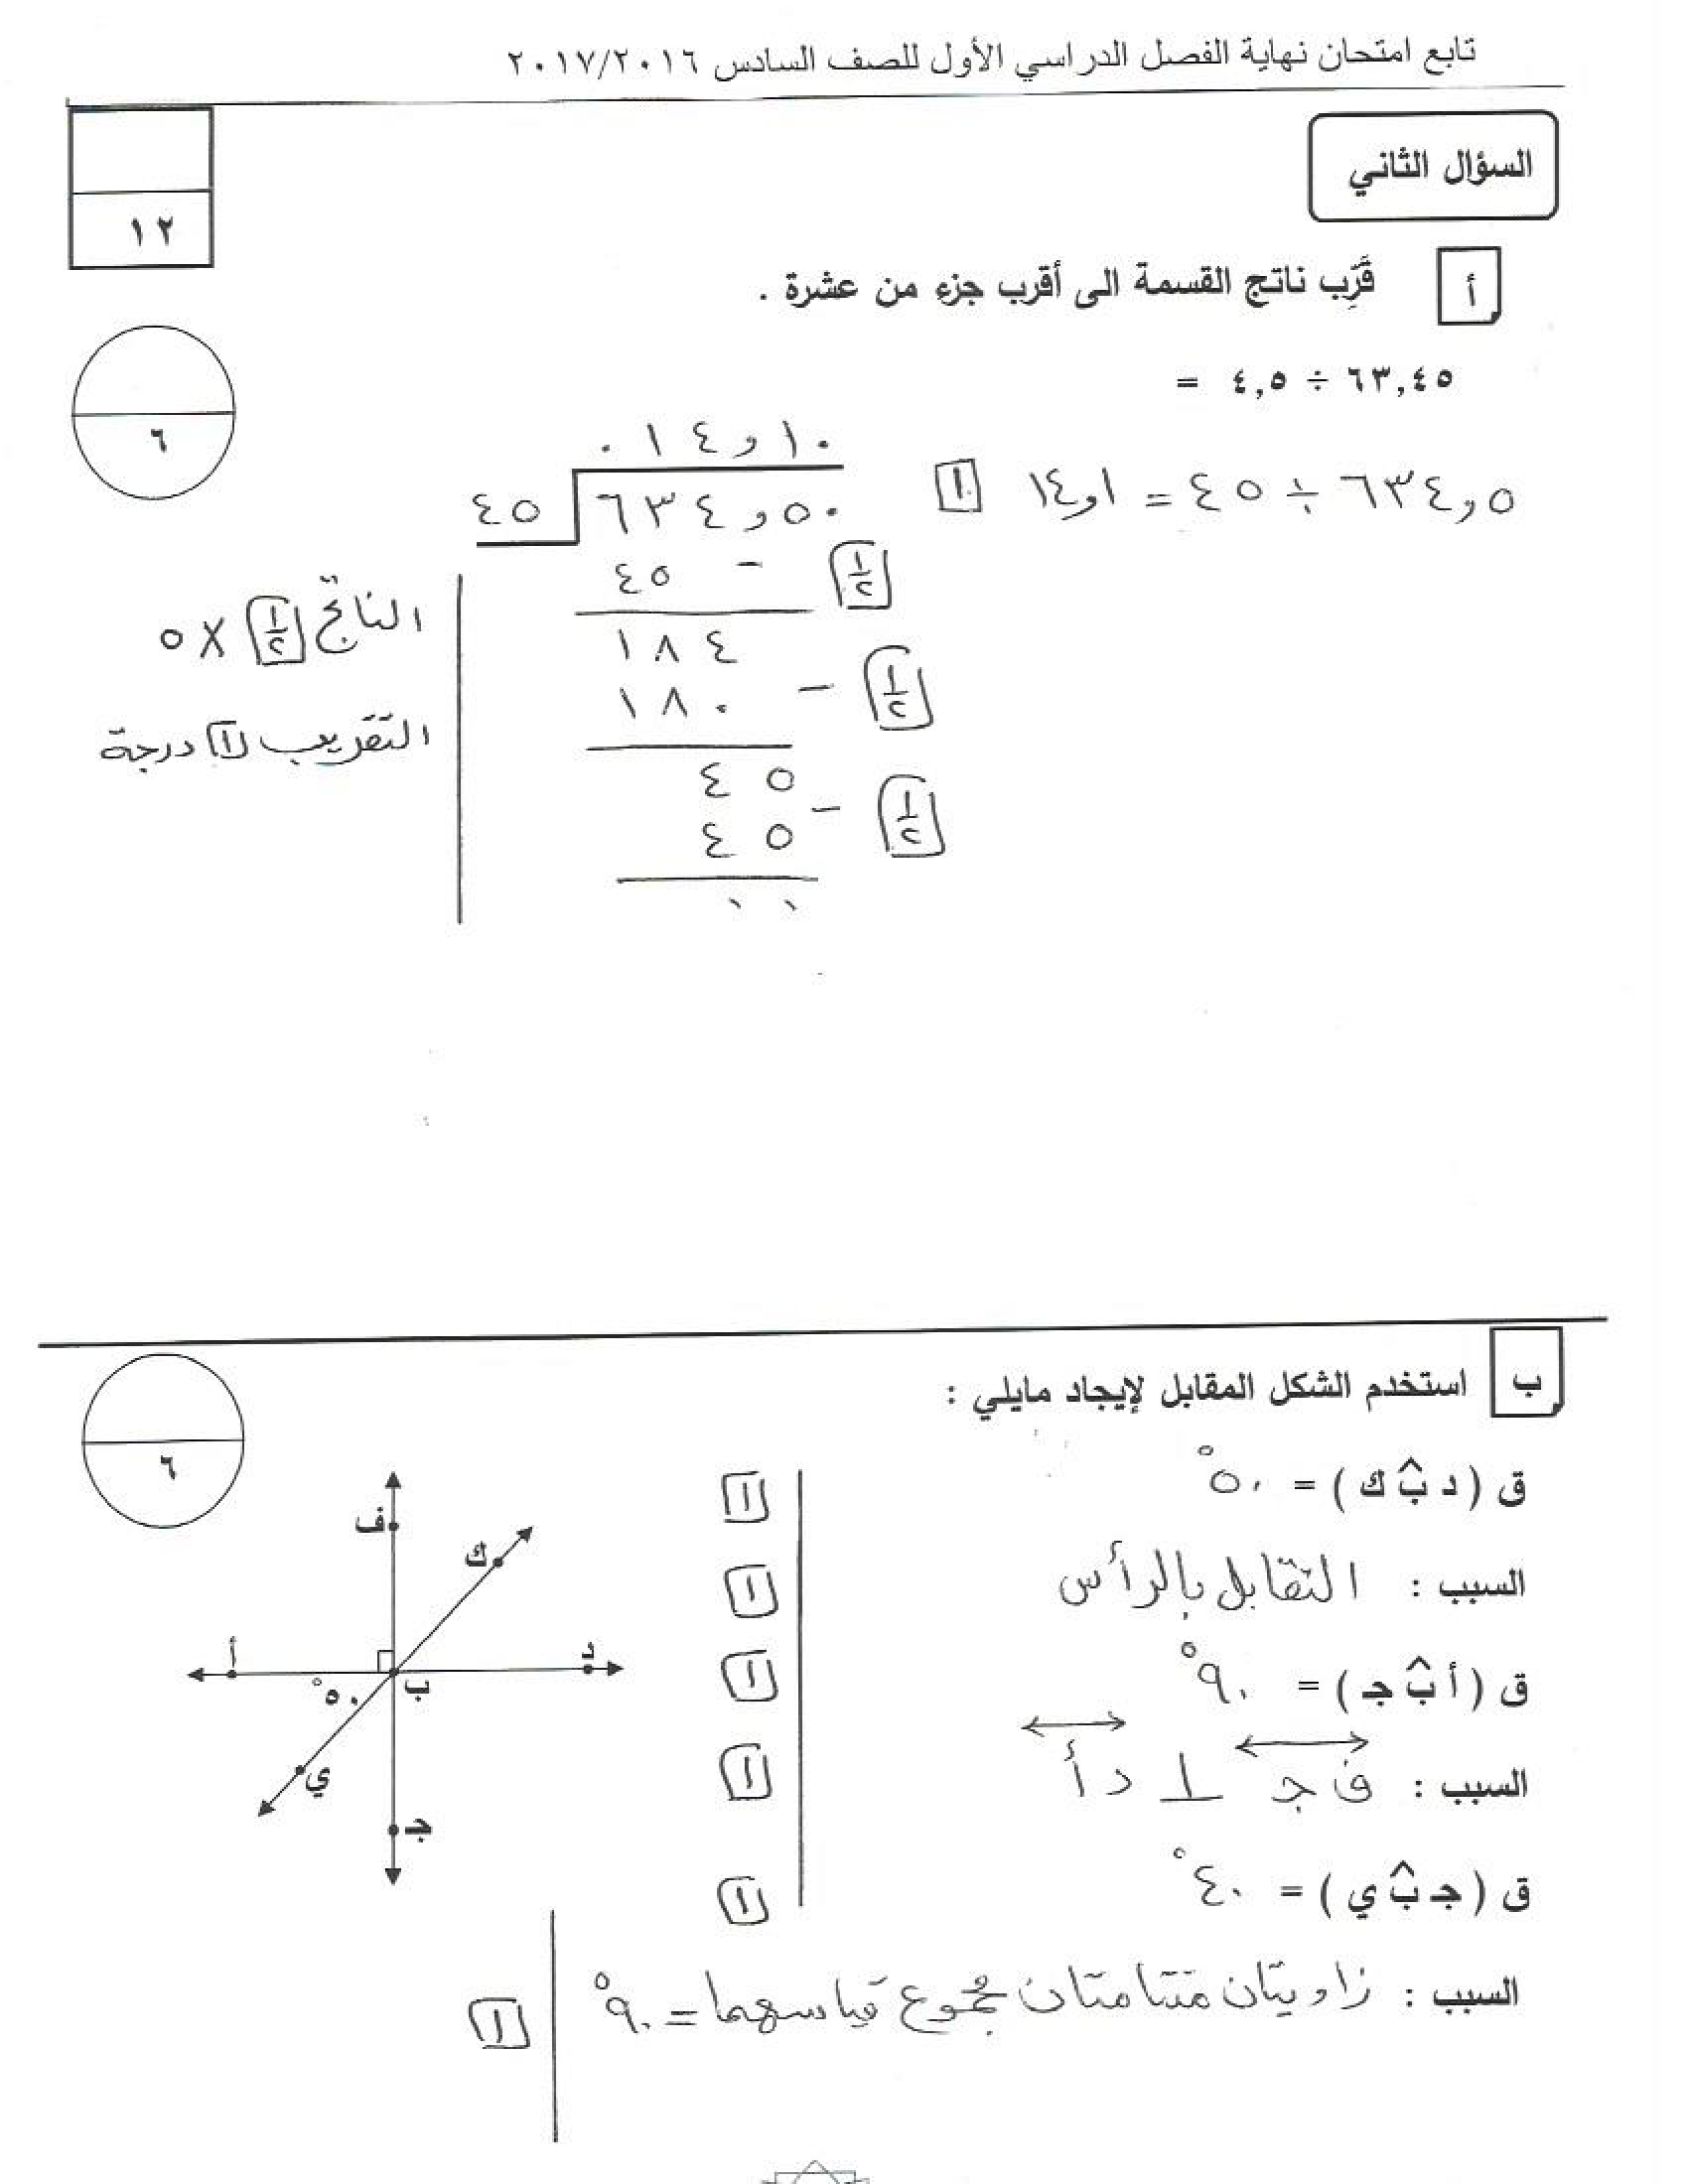 تابع امتحان نهاية الفصل الدراسي الأول للصف السادس ٢٠١٧/٢٠١٦
السؤال الثاني
١٢
أ
قَرِّب ناتج القسمة الى أقرب جزء من عشرة .
٦٣,٤٥ ÷ ٤,٥ =
٦
٦٣٤,٥ ÷ ٤٥ = ١٤,١ [١]
٠١٤,١٠
٤٥ ٦٣٤,٥٠
٤٥ - [١/٢]
١٨٤
١٨٠ - [١/٢]
٤٥
٤٥ - [١/٢]
٠٠
الناتج [١/٢] × ٥
التقريب [١] درجة
ب
استخدم الشكل المقابل لإيجاد مايلي :
٦
ق ( د ب̂ ك ) = ٥٠° [١]
السبب : التقابل بالرأس [١]
ق ( أ ب̂ جـ ) = ٩٠° [١]
السبب : ف جـ ⊥ د أ [١]
ق ( جـ ب̂ ي ) = ٤٠° [١]
السبب : زاويتان متتامتان مجموع قياسهما = ٩٠° [١]
ف
ك
أ
د
ب
٥٠°
ي
جـ